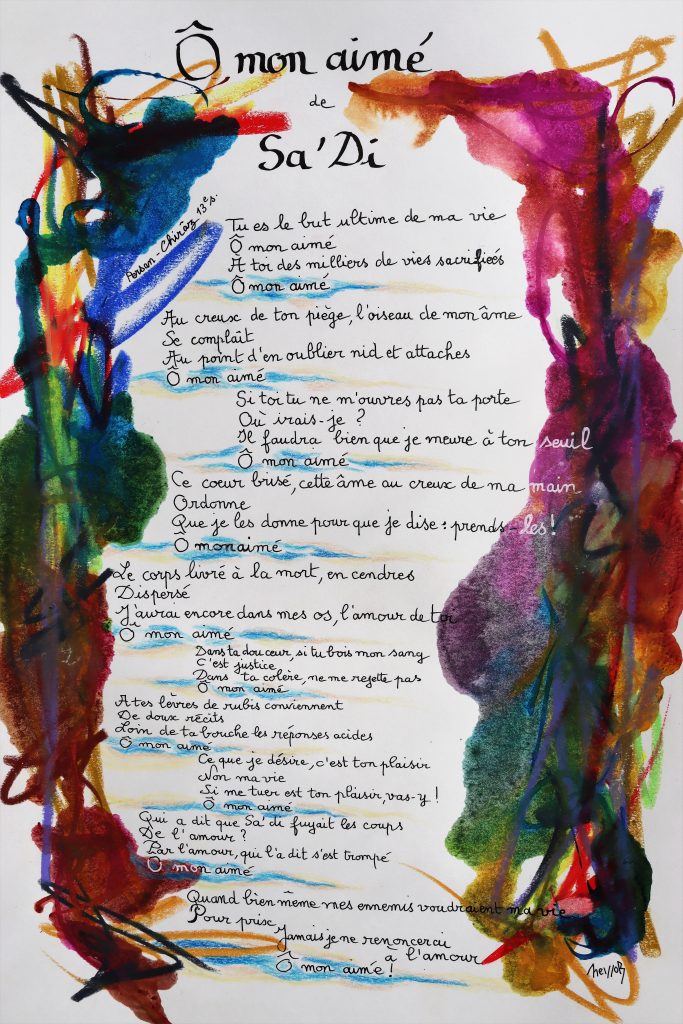 Ô mon aimé
de
Sa'Di
Persan - Chirâz 13e s.
Tu es le but ultime de ma vie
Ô mon aimé
A toi des milliers de vies sacrifieés
Ô mon aimé
Au creux de ton piège, l'oiseau de mon âme
Se complaît
Au point d'en oublier nid et attaches
Ô mon aimé
Si toi tu ne m'ouvres pas ta porte
Où irais-je ?
Il faudra bien que je meure à ton seuil
Ô mon aimé
Ce coeur brisé, cette âme au creux de ma main
Ordonne
Que je les donne pour que je dise : prends-les!
Ô mon aimé
Le corps livré à la mort, en cendres
Dispersé
J'aurai encore dans mes os, l'amour de toi
Ô mon aimé
Dans ta douceur, si tu bois mon sang
C'est justice
Dans ta colère, ne me rejette pas
Ô mon aimé
A tes lèvres de rubis conviennent
De doux récits
Loin de ta bouche les réponses acides
Ô mon aimé
Ce que je désire, c'est ton plaisir
Non ma vie
Si me tuer est ton plaisir, vas-y !
Ô mon aimé
Qui a dit que Sa'di fuyait les coups
De l'amour ?
Par l'amour, qui l'a dit s'est trompé
Ô mon aimé
Quand bien même mes ennemis voudraient ma vie
Pour prix
Jamais je ne renoncerai
à l'amour
Ô mon aimé !